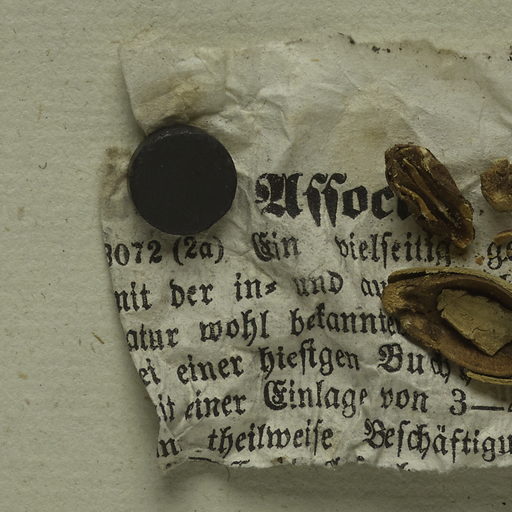 Assoc
3072 (2a) Ein vielseitig ge
mit der in= und au
atur wohl bekannte
ei einer hiesigen Buch
it einer Einlage von 3—4
n theilweise Beschäftigu